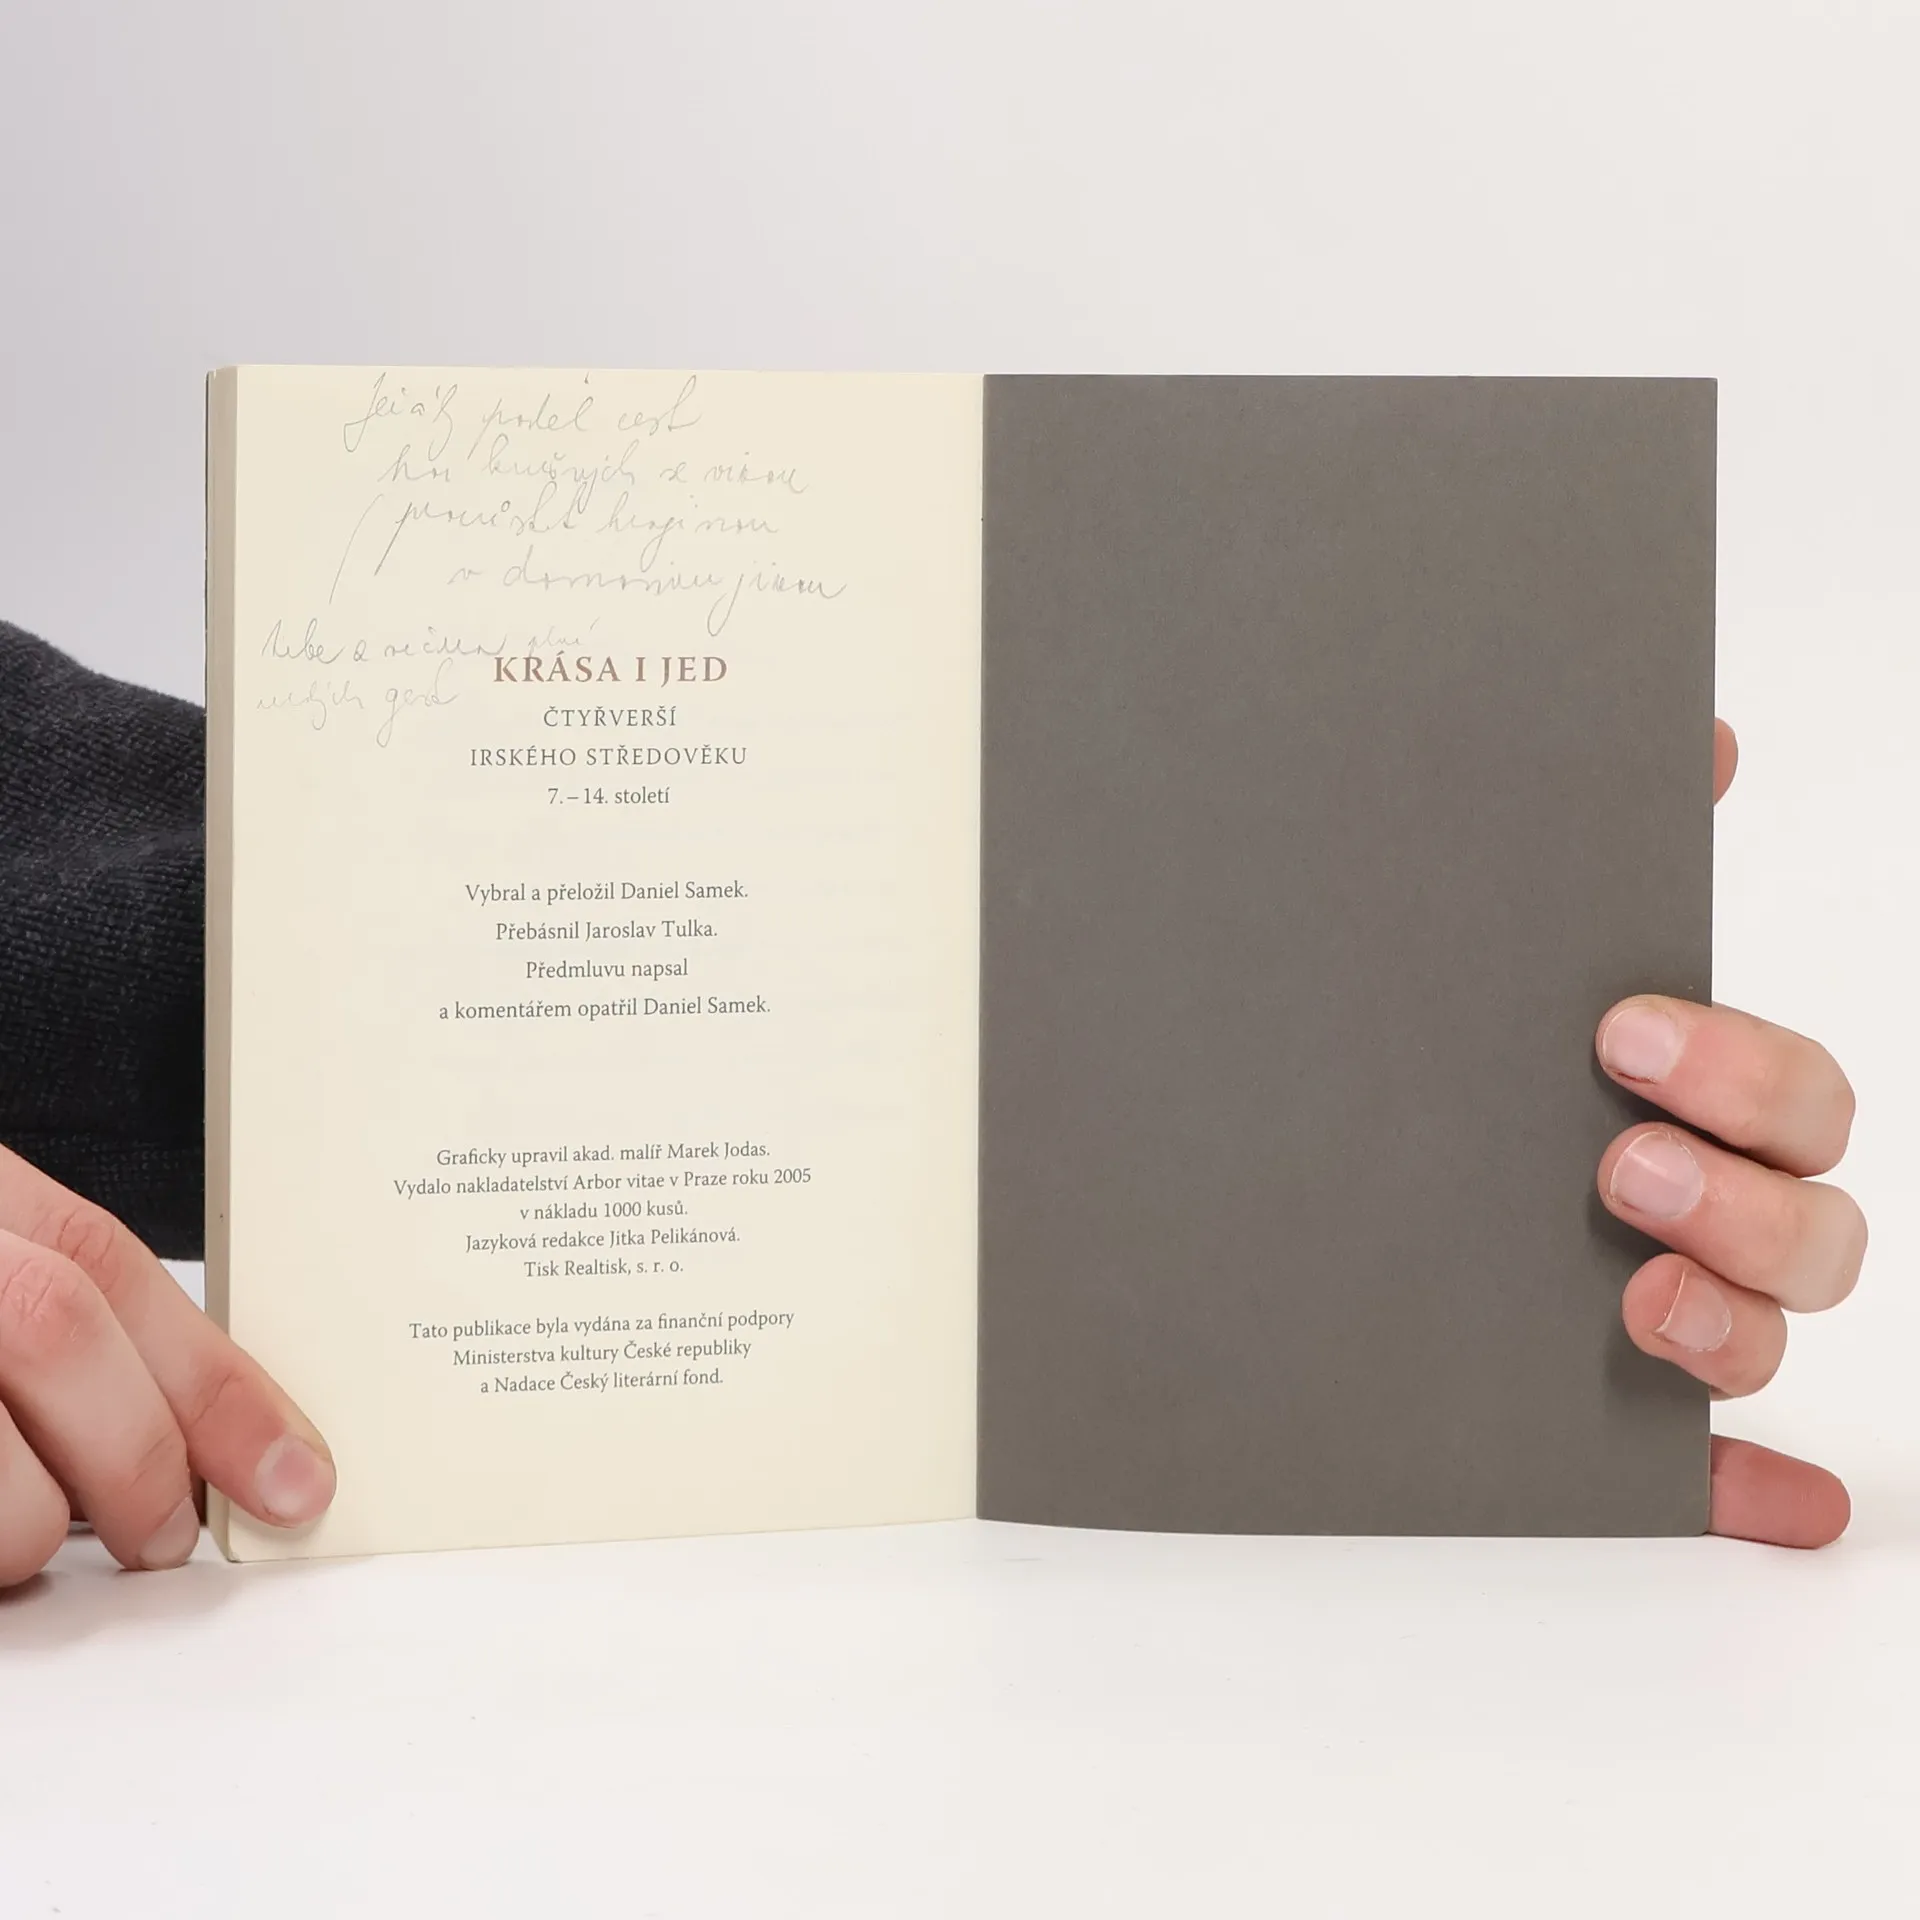 podél cest
tebe a
KRÁSA I JED
ČTYŘVERŠÍ
IRSKÉHO STŘEDOVĚKU
7. – 14. století
Vybral a přeložil Daniel Samek.
Přebásnil Jaroslav Tulka.
Předmluvu napsal
a komentářem opatřil Daniel Samek.
Graficky upravil akad. malíř Marek Jodas.
Vydalo nakladatelství Arbor vitae v Praze roku 2005
v nákladu 1000 kusů.
Jazyková redakce Jitka Pelikánová.
Tisk Realtisk, s. r. o.
Tato publikace byla vydána za finanční podpory
Ministerstva kultury České republiky
a Nadace Český literární fond.